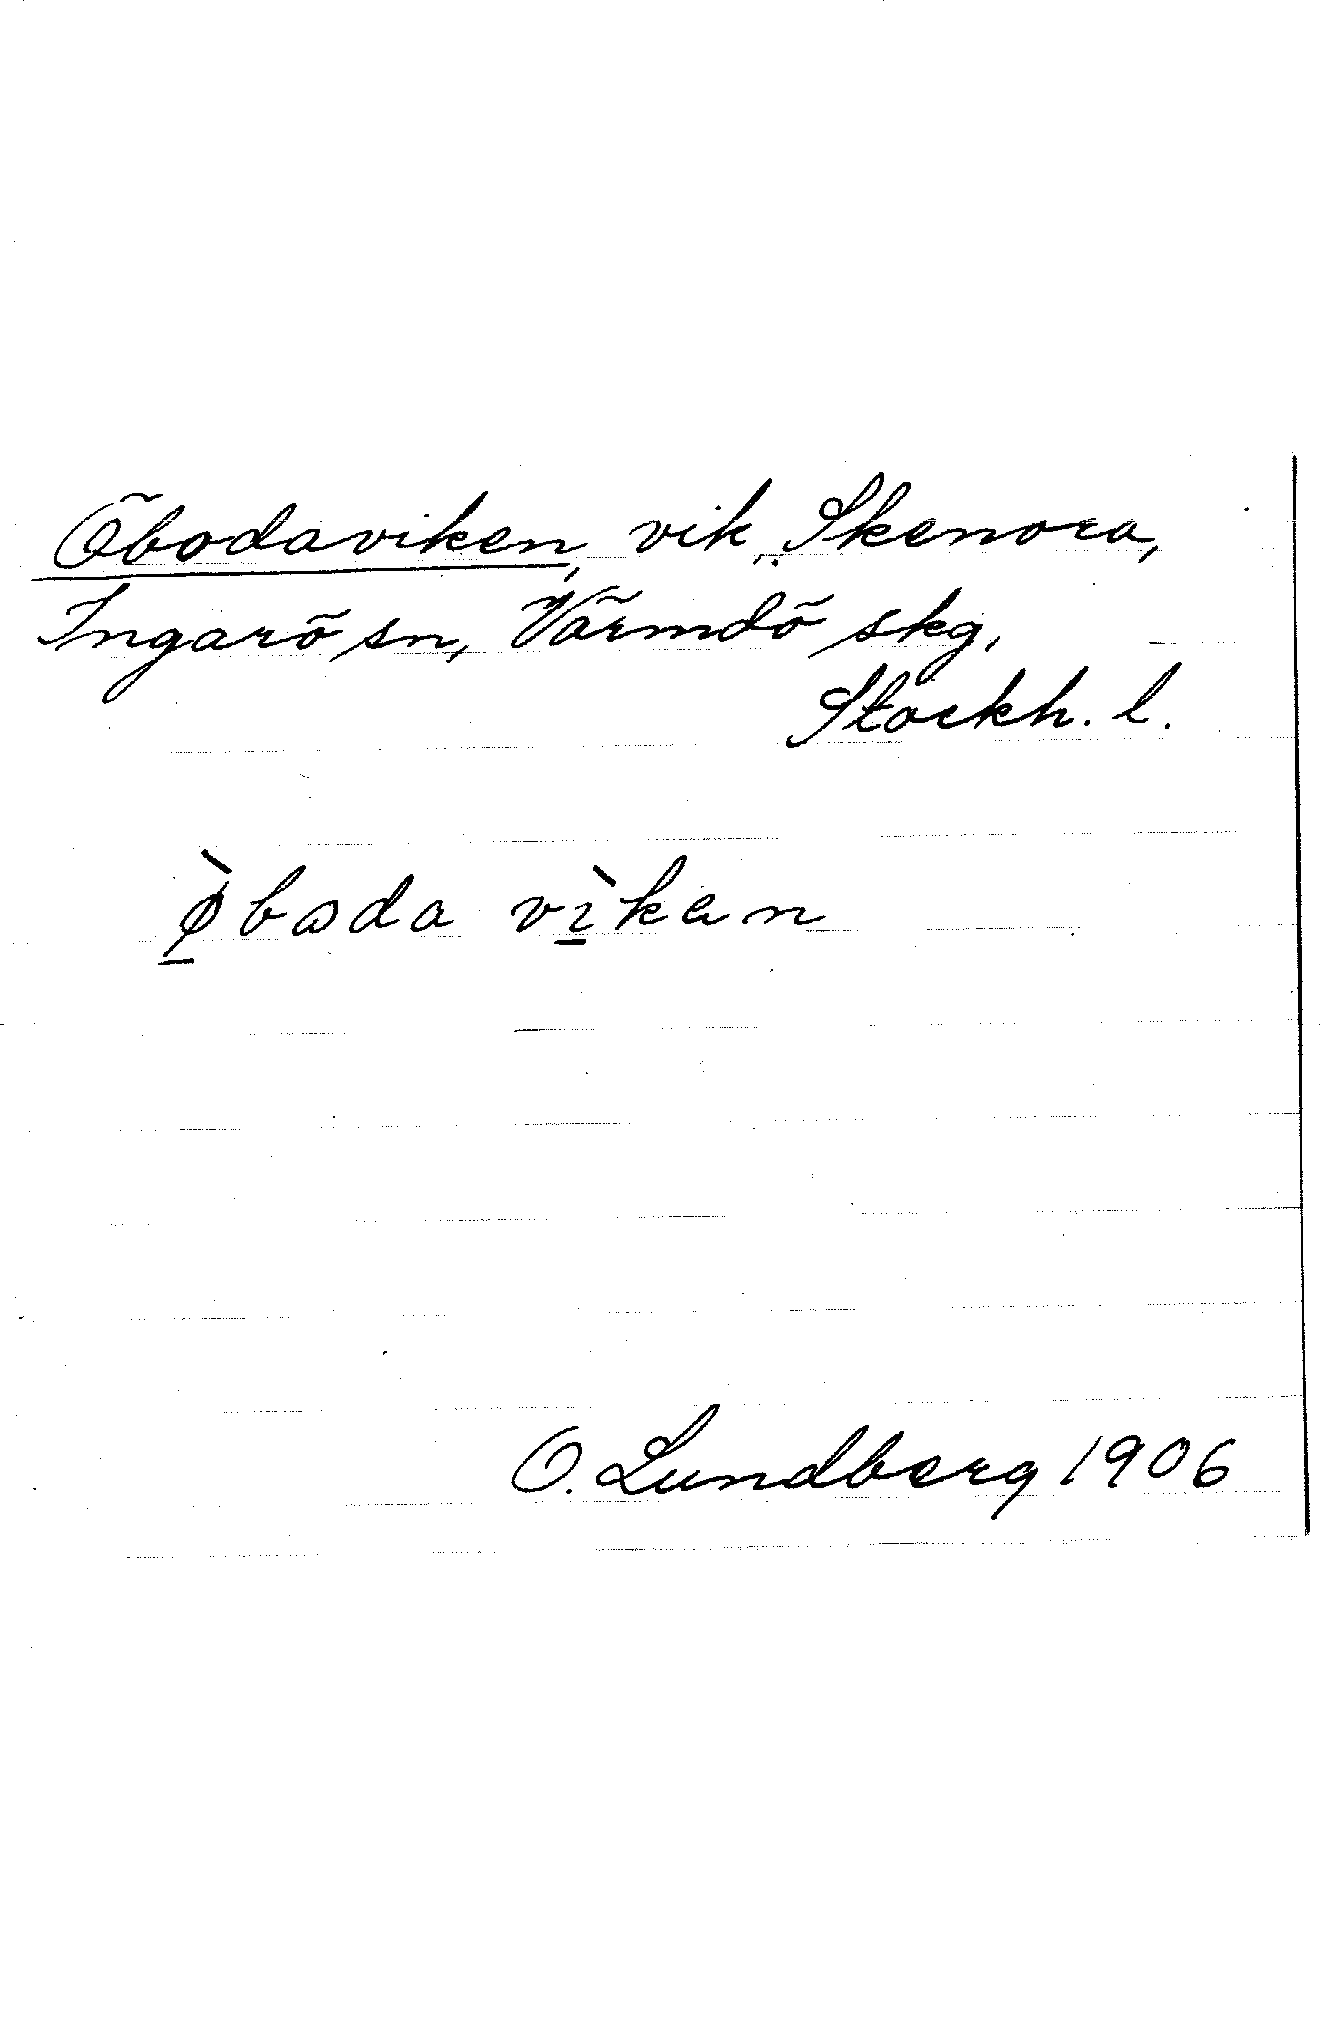 Öbodaviken, vik, Skenora,
Ingarö sn, Värmdö skg,
Stockh. l.
ø̀boda vìkɐn
O. Lundberg 1906